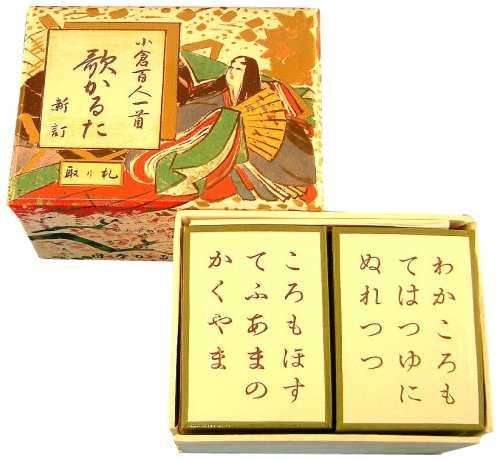 小倉百人一首
歌かるた
新訂
取り札
わかころも
てはつゆに
ぬれつつ
ころもほす
てふあまの
かくやま